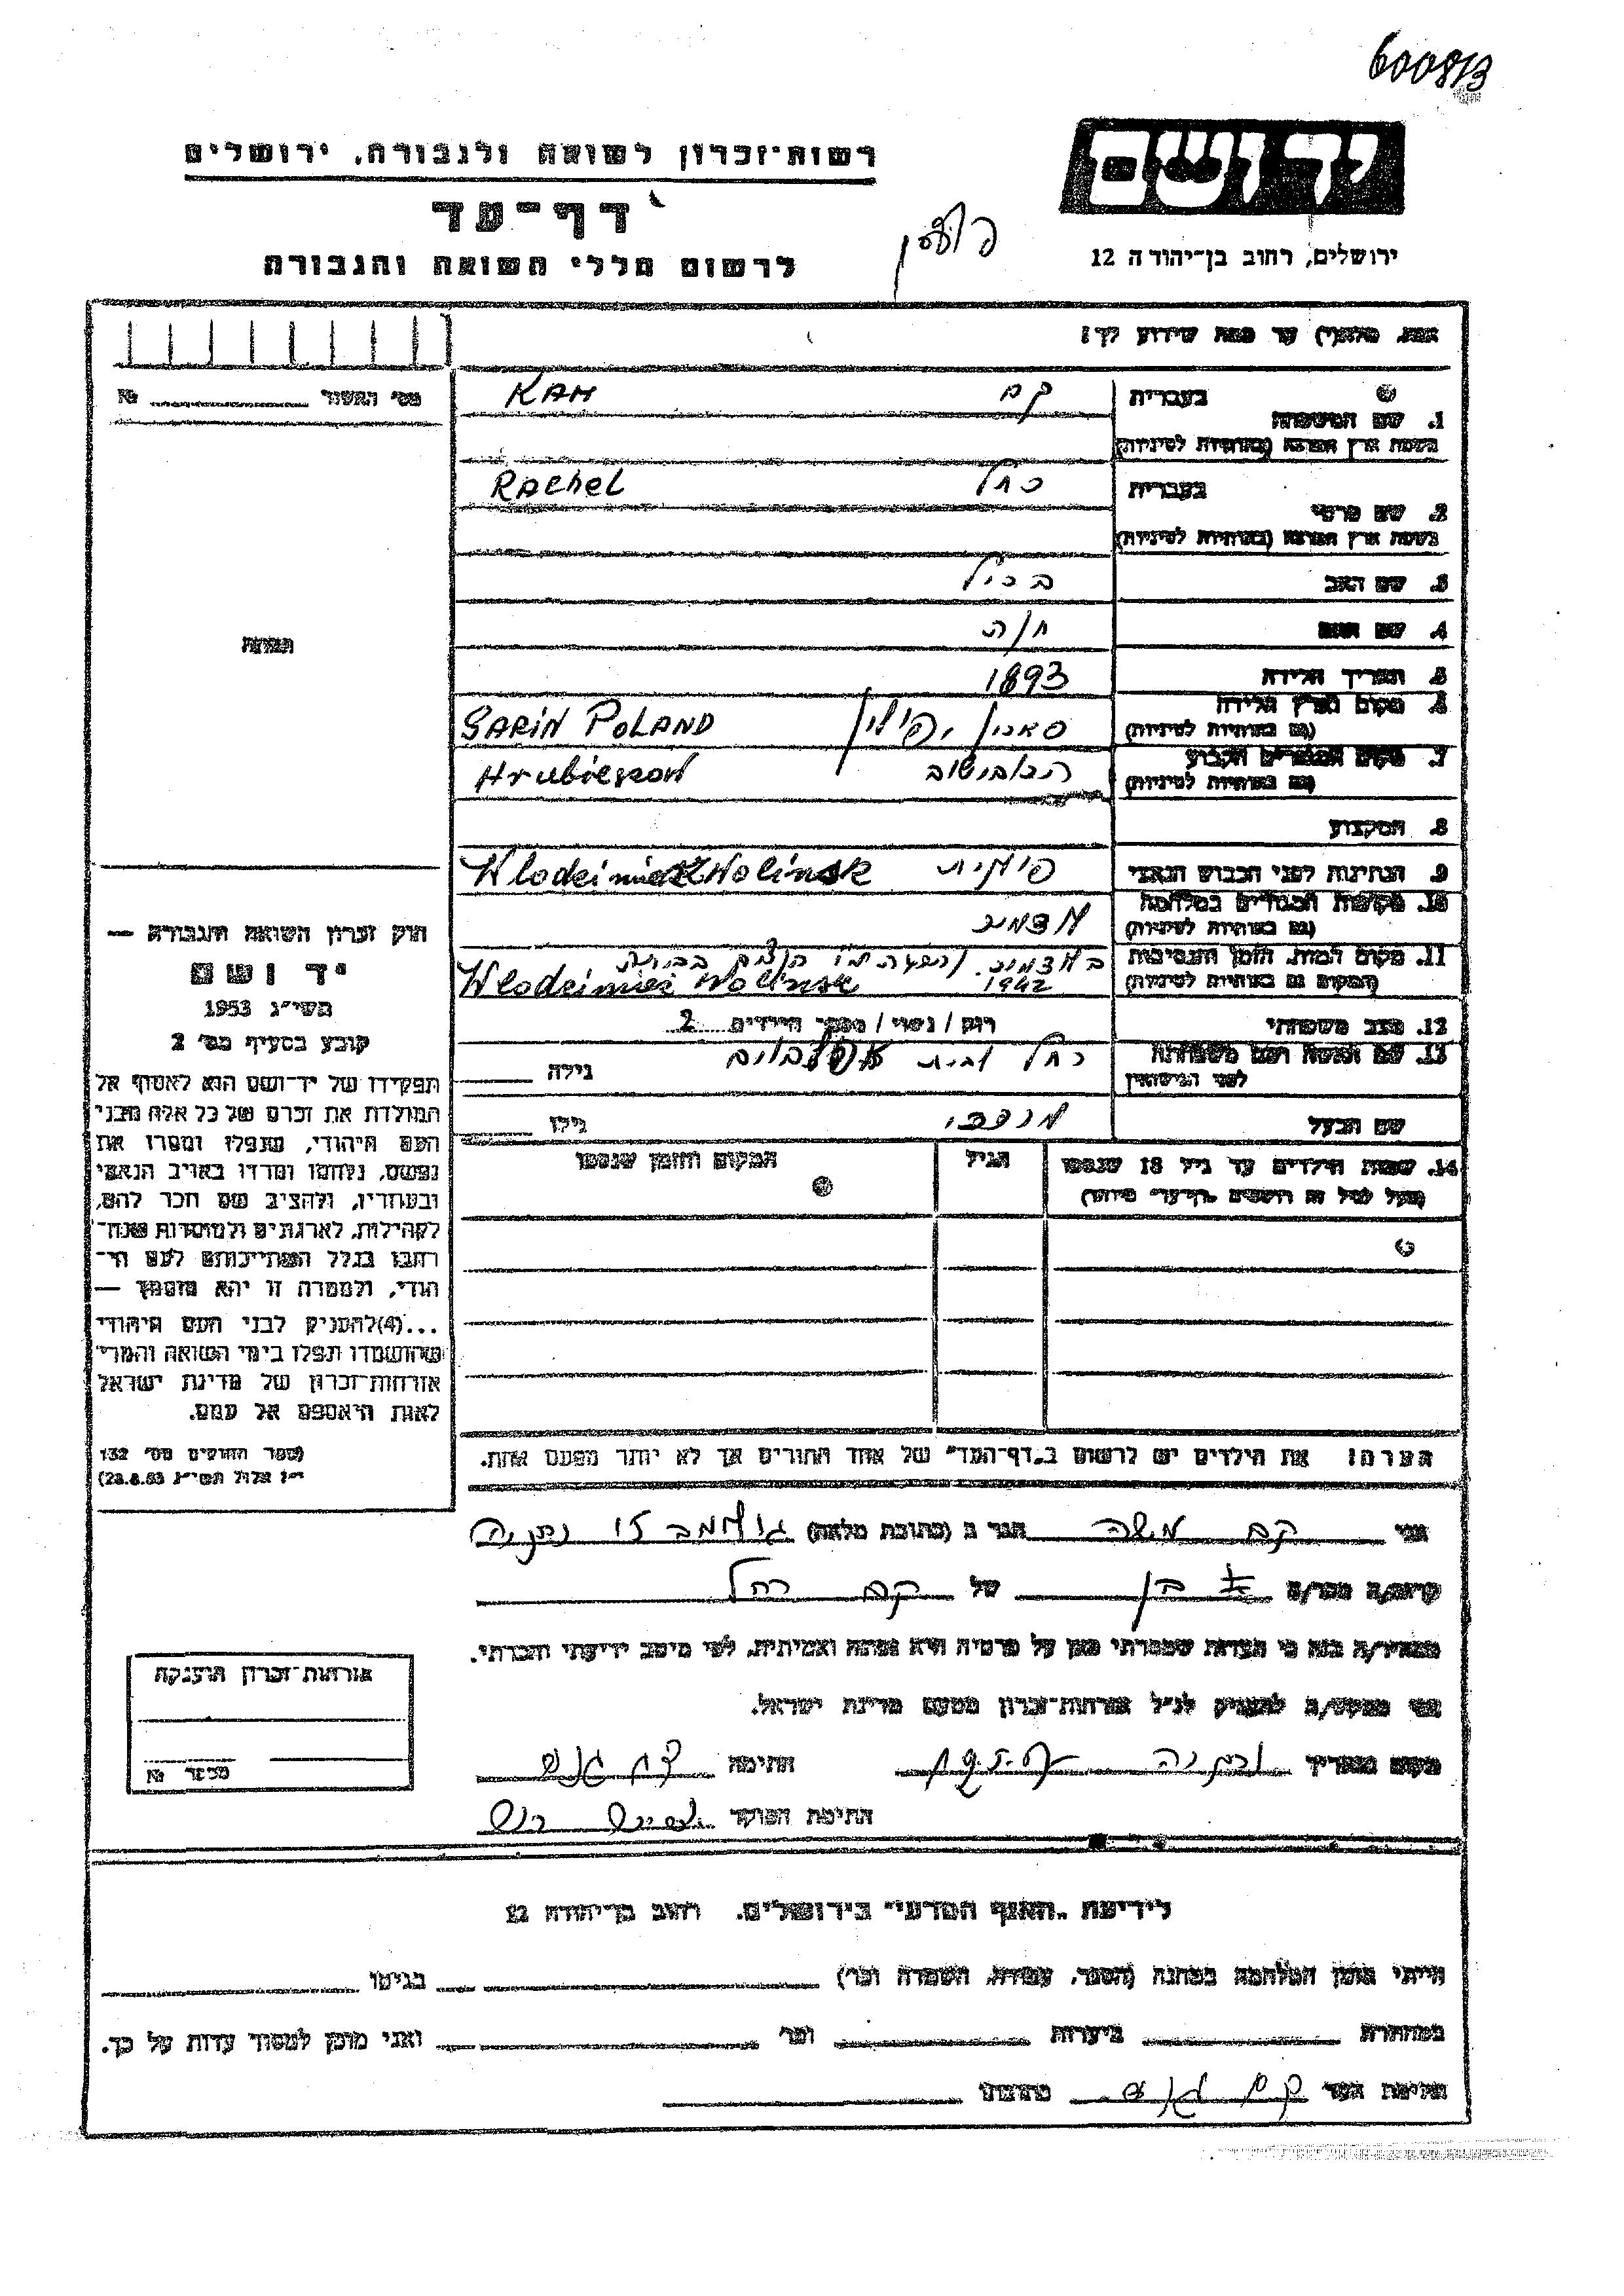 600813
יד ושם
רשות-זכרון לשואה ולגבורה, ירושלים
דף-עד
לרשום חללי השואה והגבורה
ירושלים, רחוב בן-יהודה 12
עד כמה שידוע לך!
מס' האשור № 
1. שם המשפחה
בעברית קם KAM
בשפת ארץ המוצא (באותיות לטיניות)
2. שם פרטי
בעברית רחל Rachel
בשפת ארץ המוצא (באותיות לטיניות)
3. שם האב
4. שם האם חיה
5. תאריך הלידה 1893
6. מקום וארץ הלידה
(גם באותיות לטיניות) פולין SARIN POLAND
7. מקום המגורים הקבוע
(גם באותיות לטיניות) הרובישוב Hrubieszow
8. המקצוע
9. הנתינות לפני הכבוש הנאצי פולנית Wlodzimierz Wolinsk
10. מקומות המגורים במלחמה
(גם באותיות לטיניות) לודמיר
11. מקום המות, הזמן והנסיבות
(המקום גם באותיות לטיניות) בלודמיר 1942
Wlodzimierz Wolinsk
12. מצב משפחתי רוק / נשוי / מספר הילדים 2
13. שם האשה ושם משפחתה
לפני הנישואין רחל לבית גילה
שם הבעל מרדכי גילו
14. שמות הילדים עד גיל 18 שנספו
(מעל לגיל זה רושמים "דף-עד" מיוחד)
הגיל
המקום והזמן שנספו
הערה! את הילדים יש לרשום ב"דף-העד" של אחד ההורים אך לא יותר מפעם אחת.
תמונה
חוק זכרון השואה והגבורה —
יד ושם
תשי"ג 1953
קובע בסעיף מס' 2
תפקידו של יד-ושם הוא לאסוף אל
המולדת את זכרם של כל אלה מבני
העם היהודי, שנפלו ומסרו את
נפשם, נלחמו ומרדו באויב הנאצי
ובעוזריו, ולהציב שם וזכר להם,
לקהילות, לארגונים ולמוסדות שנח-
רבו בגלל השתייכותם לעם הי-
הודי, ולמטרה זו יהא מוסמך —
...(4)להעניק לבני העם היהודי
שהושמדו ונפלו בימי השואה והמרי
אזרחות-זכרון של מדינת ישראל
לאות היאספם אל עמם.
(ספר החוקים מס' 132
י"ז אלול תשי"ג 28.8.53)
אני קם משה הגר ב (כתובת מלאה) נתניה
קרוב/ה מכר/ה בן של קם רחל
מצהיר/ה בזה כי העדות שמסרתי כאן על פרטיה היא נכונה ואמיתית, לפי מיטב ידיעתי והכרתי.
אני מבקש/ת להעניק לנ"ל אזרחות-זכרון מטעם מדינת ישראל.
מקום ותאריך נתניה חתימה
חתימת הפוקד
אזרחות-זכרון הוענקה
מכתב №
לידיעת "האגף המדעי" בירושלים. רחוב בן-יהודה 12
הייתי בזמן המלחמה במחנה (הסגר, עבודה, השמדה וכו') בגיטו
במחתרת ביערות וכו' ואני מוכן למסור עדות על כך.
חתימת העד קם משה כתובתו